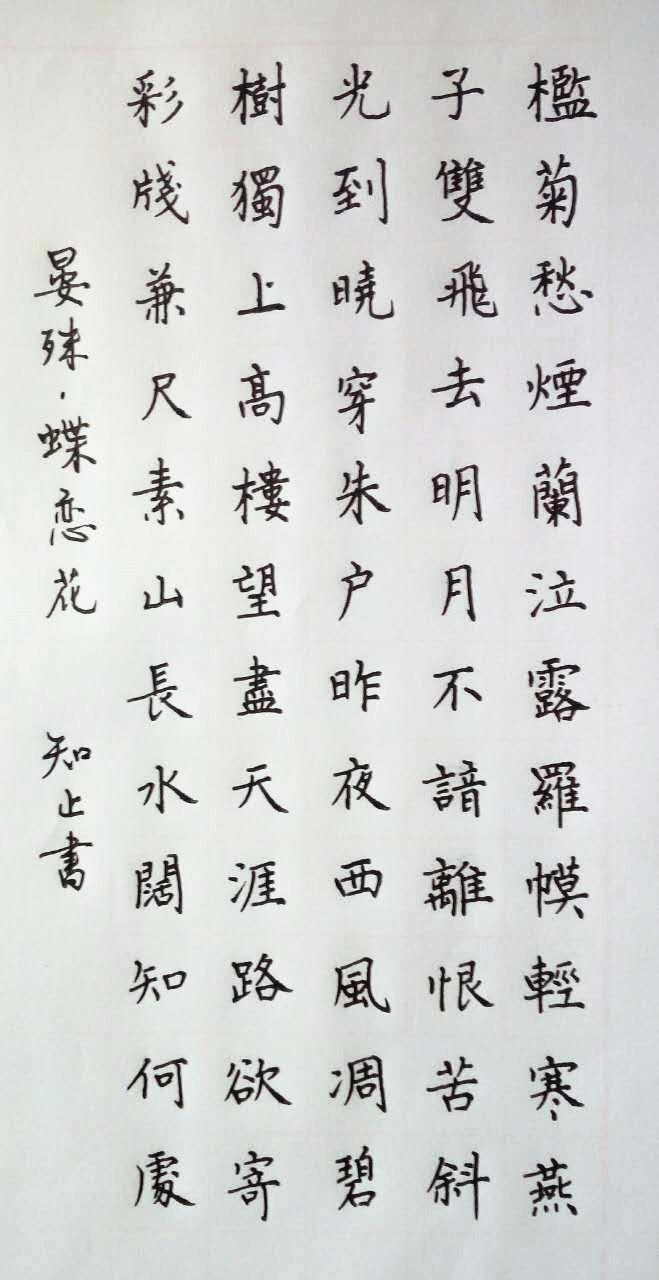 檻菊愁煙蘭泣露羅幙輕寒燕
子雙飛去明月不諳離恨苦斜
光到曉穿朱户昨夜西風凋碧
樹獨上高樓望盡天涯路欲寄
彩牋兼尺素山長水闊知何處
晏殊·蝶恋花 知止書